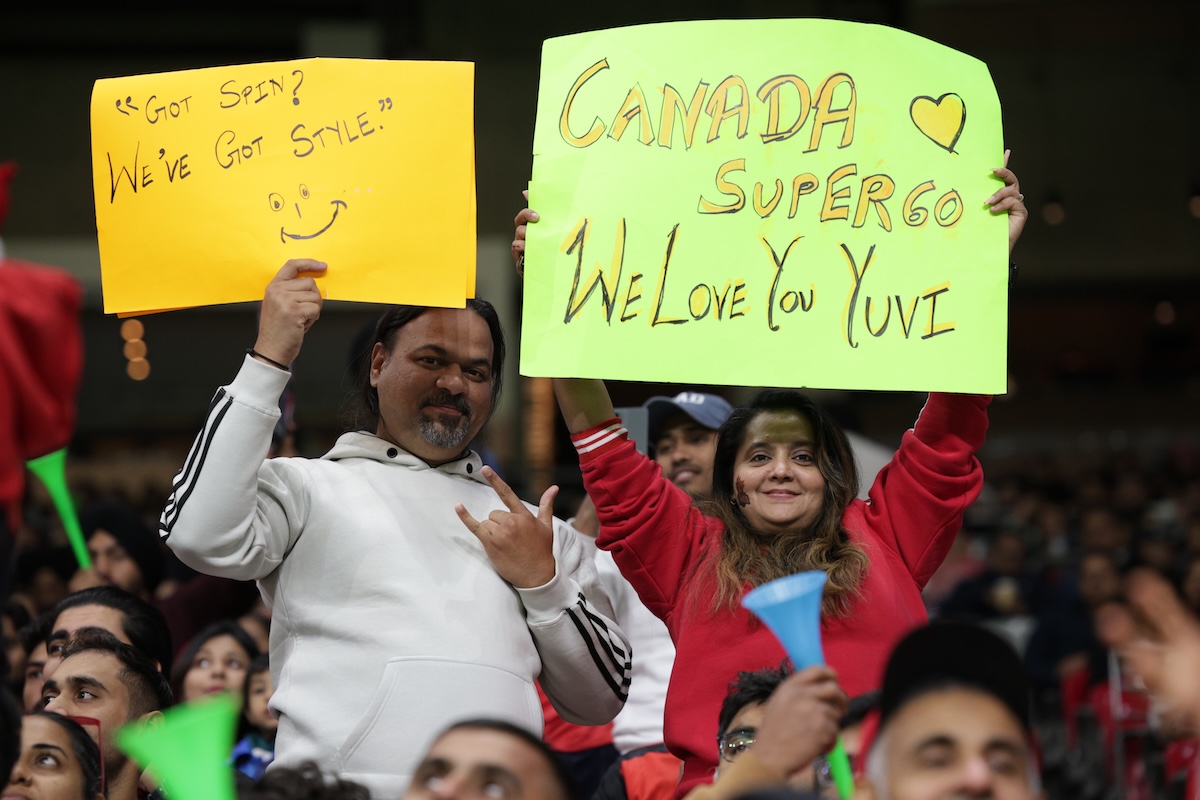 “Got Spin?
We've Got Style.”
CANADA
SUPER60
We Love You YUVI